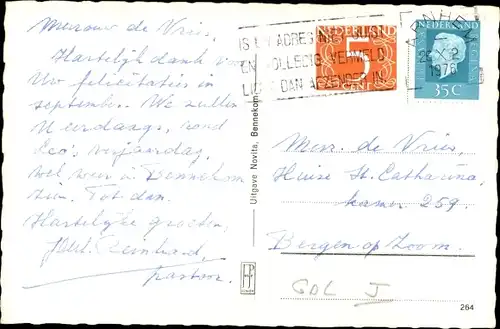 Mevrouw de Vries,
Hartelijk dank voor
Uw felicitaties in
september. We zullen
Neerdaags, rond
Leo's verjaardag,
wel weer in Bennekom
zijn. Tot dan.
Hartelijke groeten,
Reinhard,
pastoor.
Uitgave Novita, Bennekom
IS UW ADRES WEL JUIST
EN VOLLEDIG VERMELD
DAN AFZENDER IN
NEDERLAND
5
CENT
ARNHEM
1976
NEDERLAND
35 C
Mevr. de Vries,
Huize St. Catharina,
kamer 259.
Bergen op Zoom.
GDL J
264